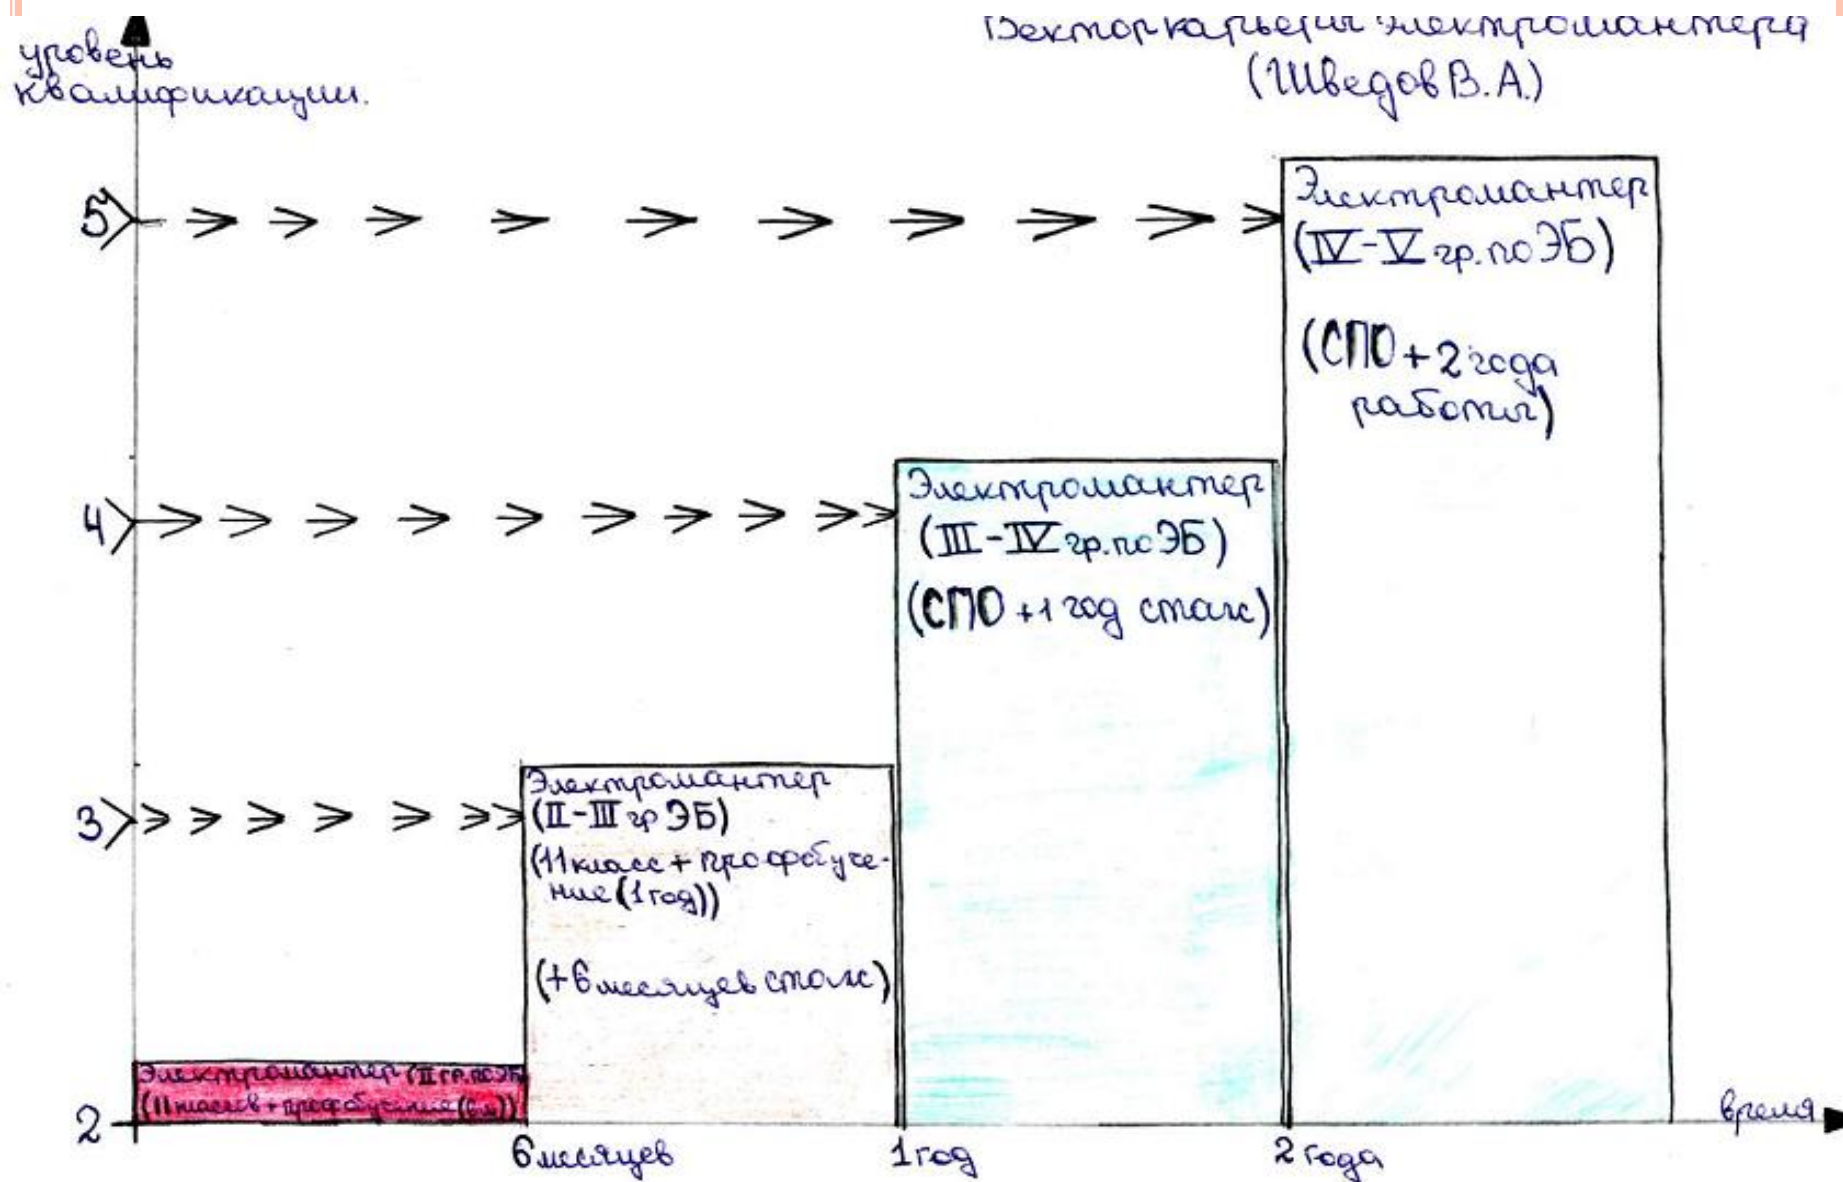 уровень
квалификации.
Вектор карьеры электромантера
(Шведов В.А.)
5
Электромантер
(IV-V гр. по ЭБ)
(СПО + 2 года
работы)
4
Электромантер
(III-IV гр. по ЭБ)
(СПО +1 год стаж)
3
Электромантер
(II-III гр ЭБ)
(11 класс + профобуче-
ние (1 год))
(+6 месяцев стаж)
Электромантер (II гр. по ЭБ)
(11 классов + профобучение (6 м))
2
время
6 месяцев
1 год
2 года